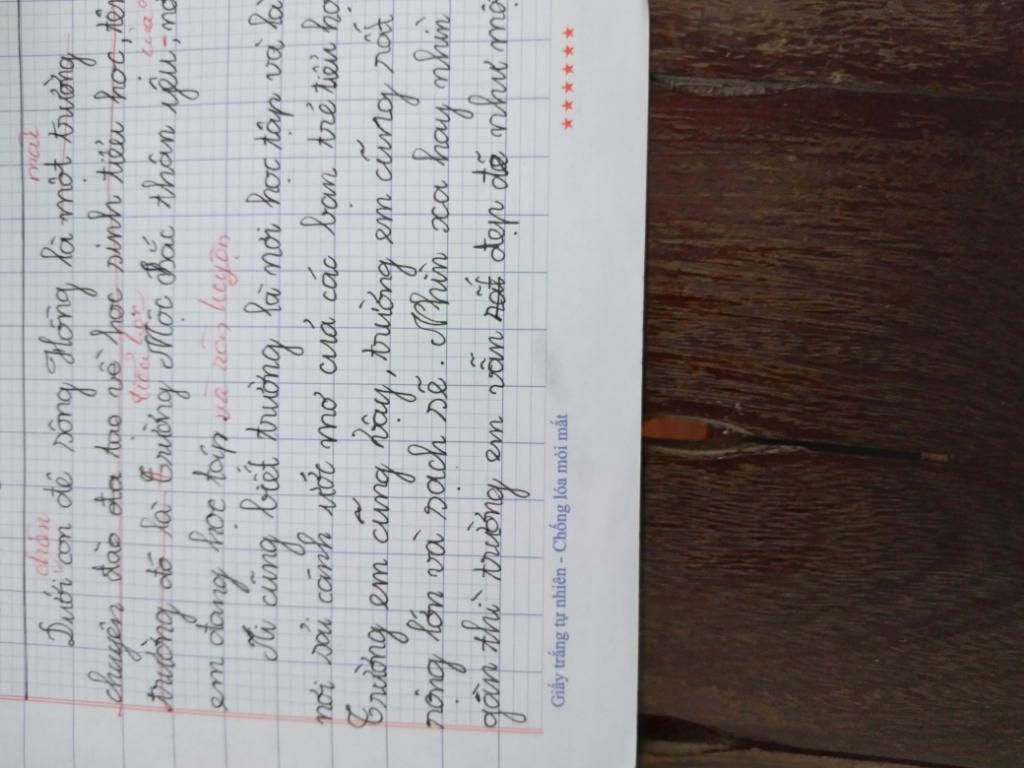 chân mái
Dưới con đê sông Hồng là một trường
chuyên đào đa tao về học sinh tiểu học, tên
tiểu học của
trường đó là Trường Mộc Bắc thân yêu, nơi
em đang học tập và rèn luyện
Ai cũng biết trường là nơi học tập và là
nơi sải cánh ước mơ của các bạn trẻ tiểu họ
Trường em cũng vậy, trường em cũng rất
rộng lớn và sạch sẽ. Nhìn xa hay nhìn
gần thì trường em vẫn đẹp đẽ như mộ
Giấy trắng tự nhiên - Chống lóa mỏi mắt